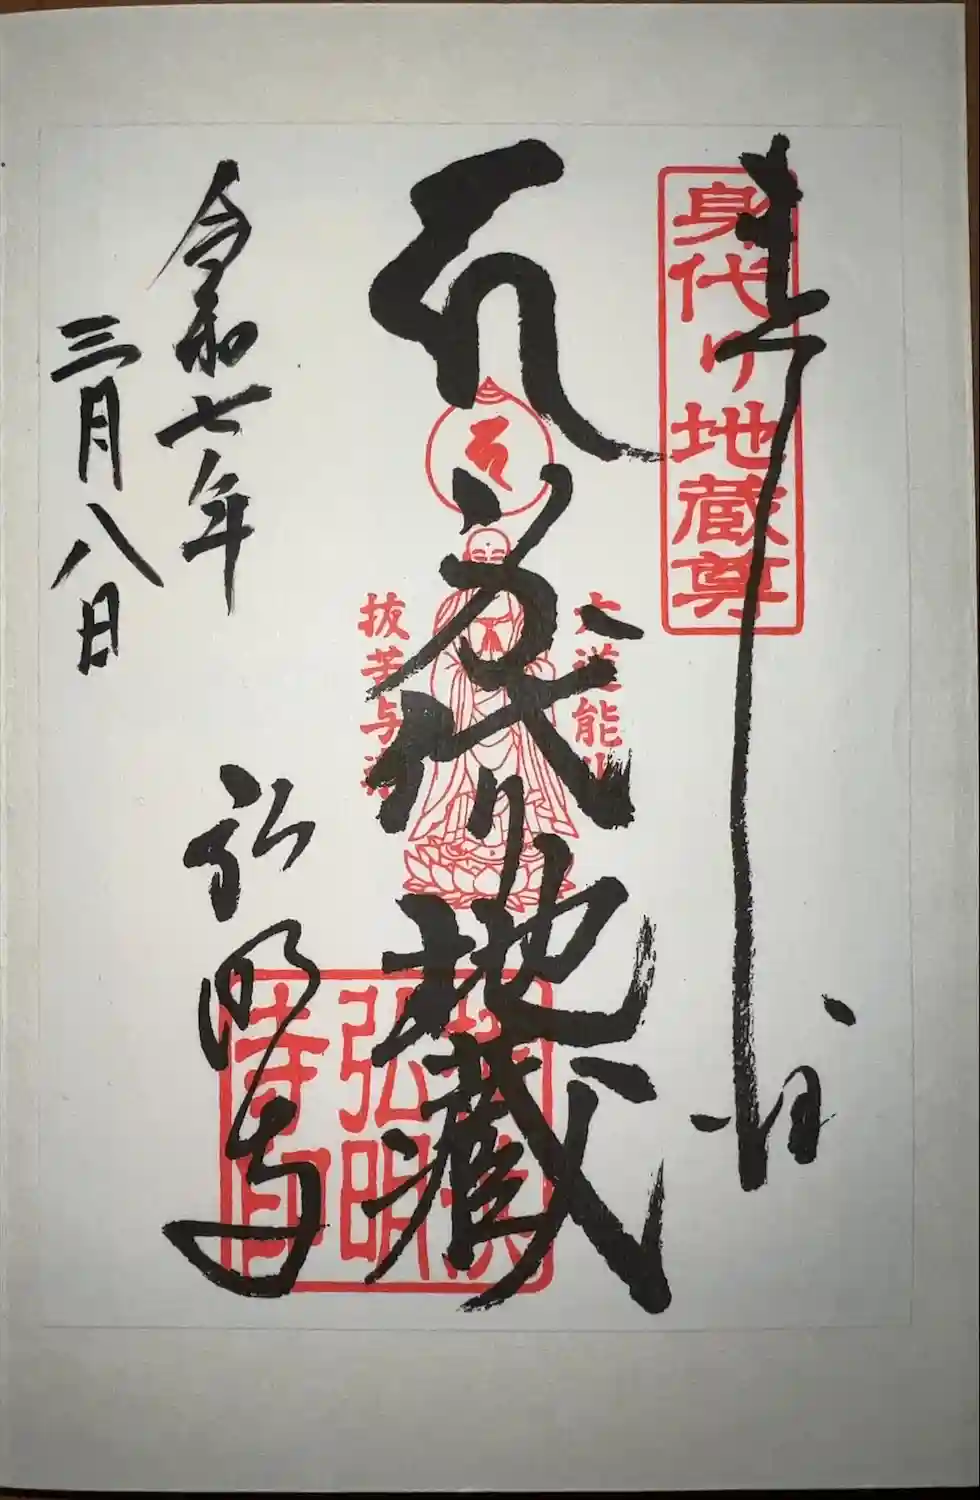 奉拝
身代り地蔵尊
身代り地蔵
六道能
抜苦与
弘明寺
弘明
寺印
令和七年
三月八日